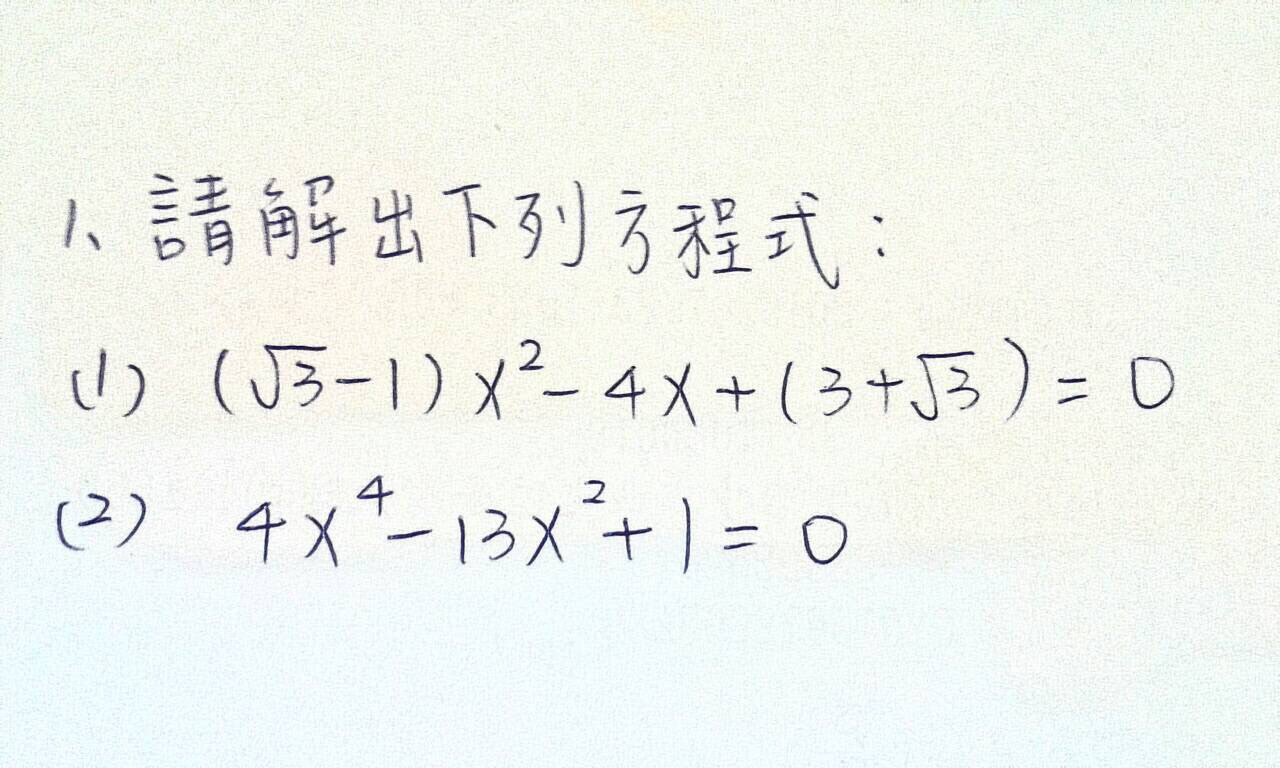 1、請解出下列方程式：
(1) (√3-1)x²-4x+(3+√3)=0
(2) 4x⁴-13x²+1=0